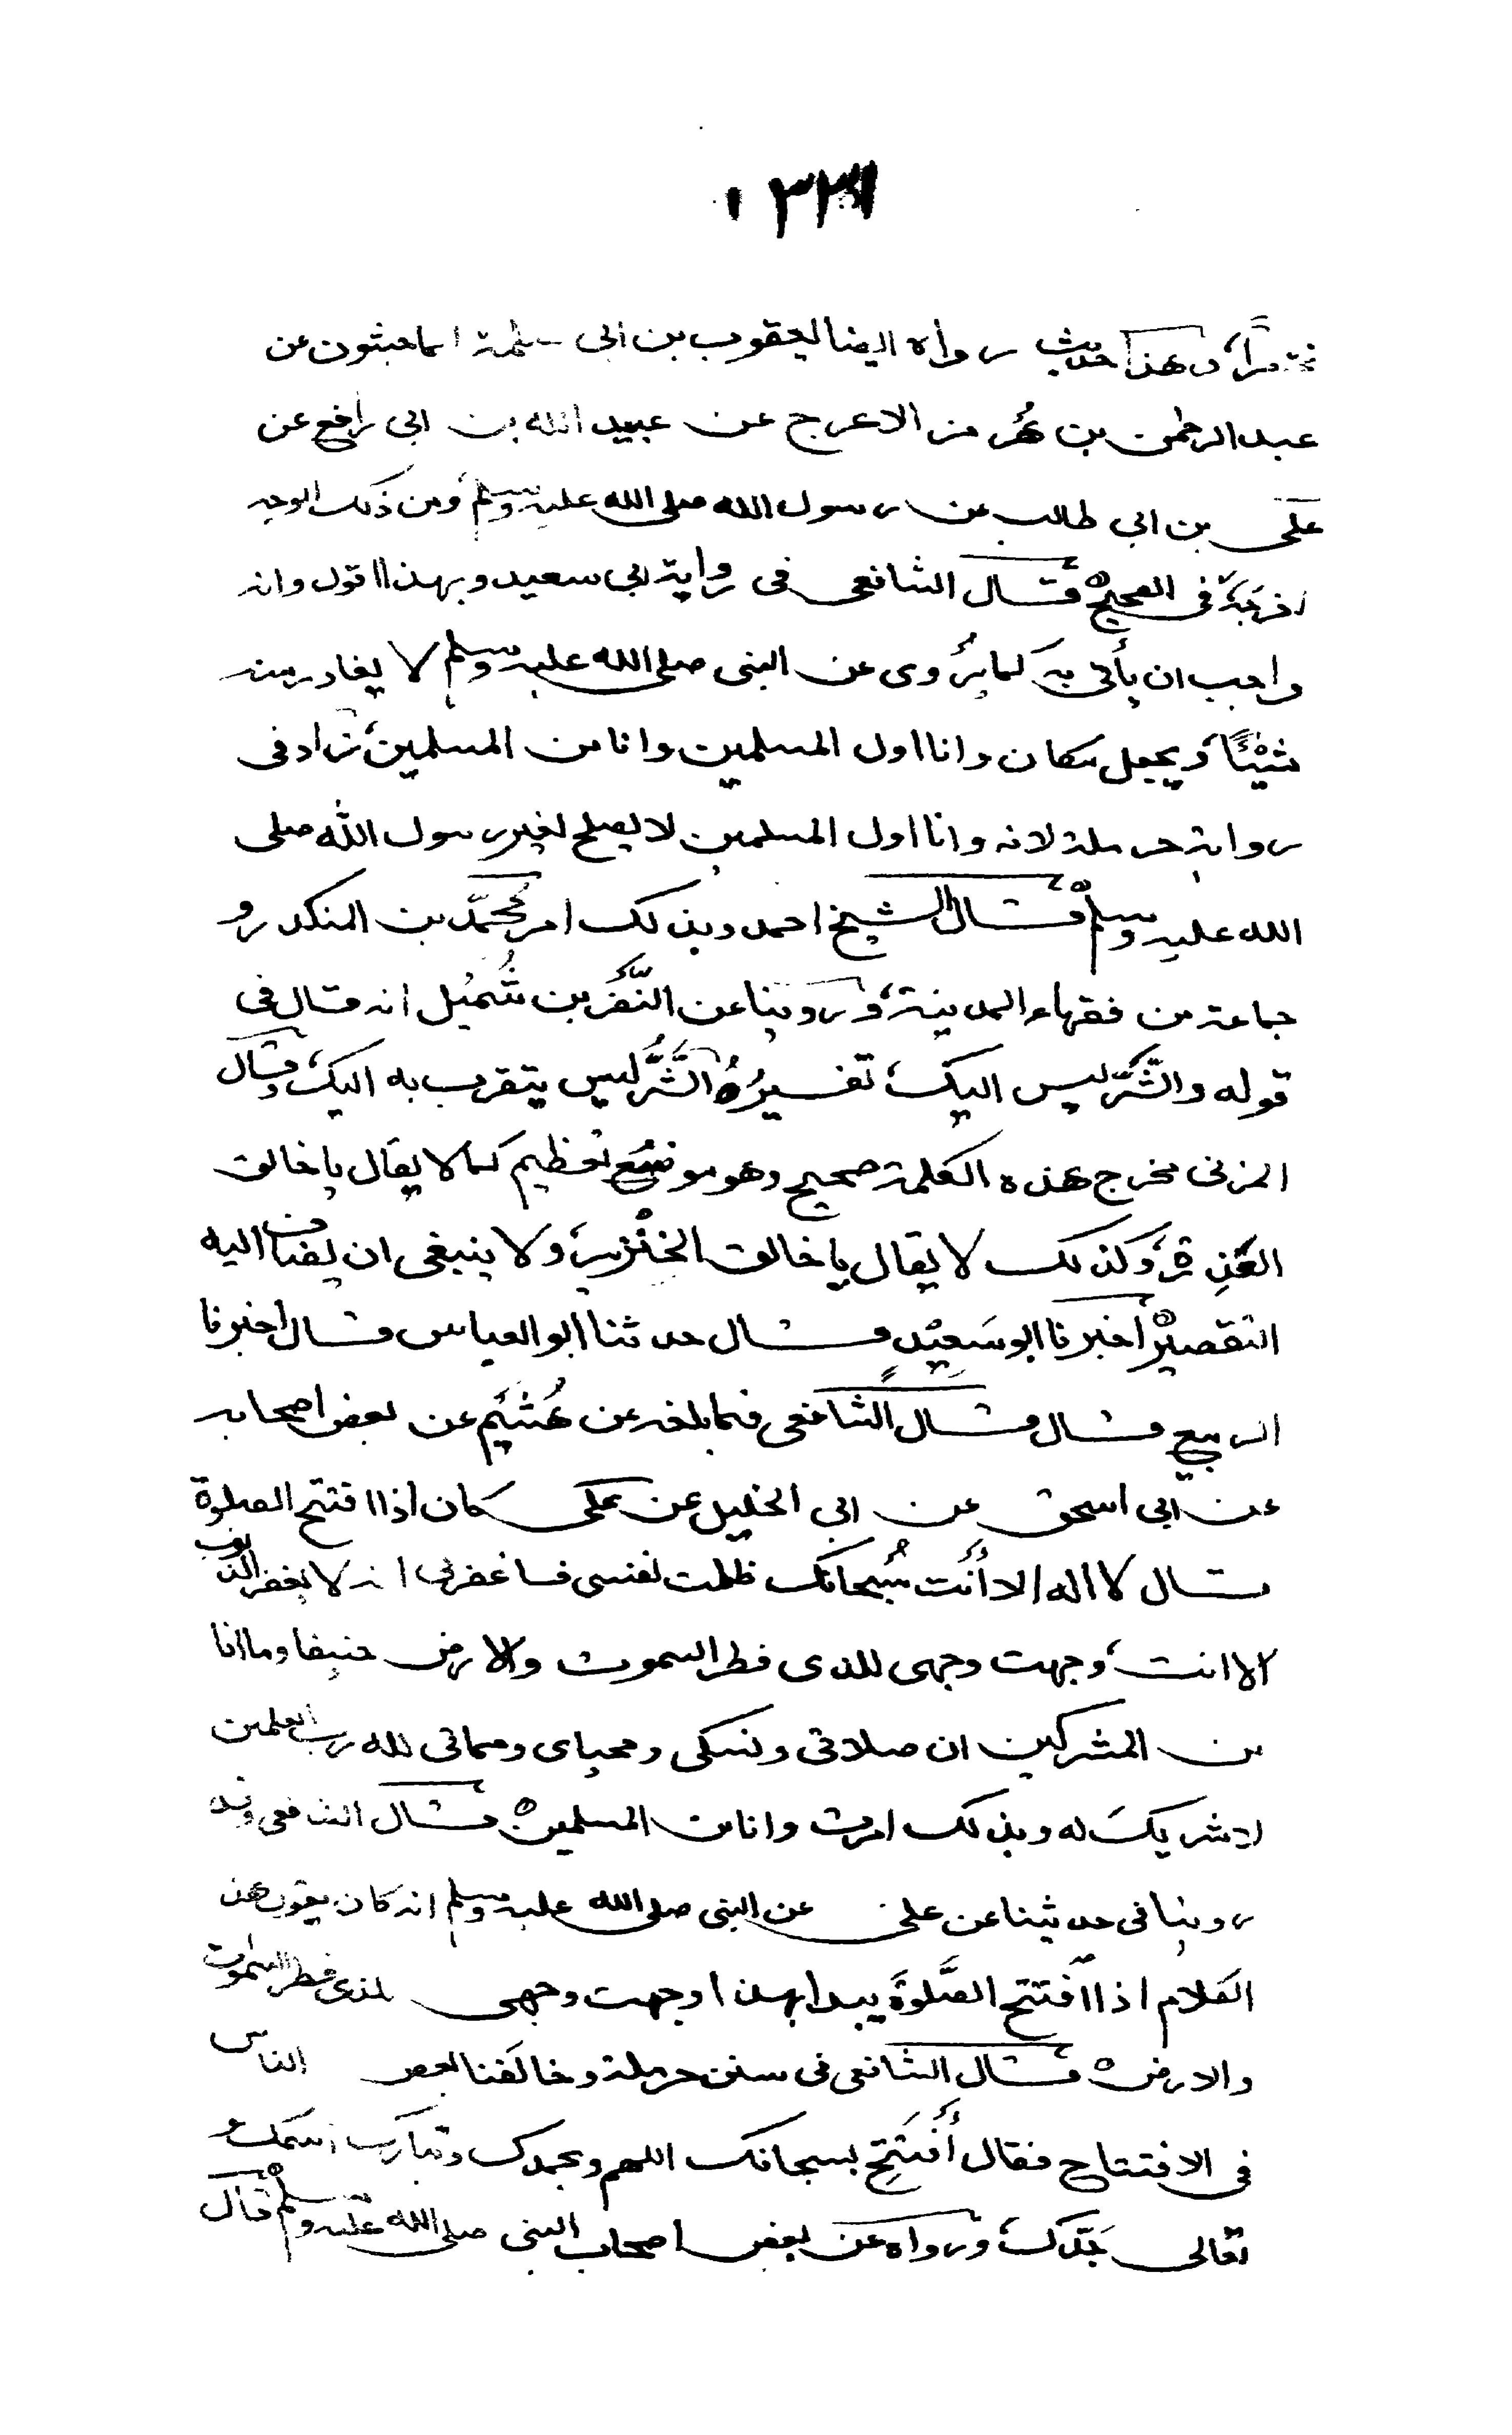 مختصراً، وهذا حديث رواه ايضا يعقوب بن ابى سلمة الماجشون عن
عبد الرحمن بن هُرمز الاعرج عن عبيد الله بن ابى رافع عن
على بن ابى طالب عن رسول الله صلى الله عليه وسلم ومن ذلك الوجه
اخرجه فى الصحيح ه قال الشافعى فى رواية ابى سعيد وبهذا اقول وانه
واجب ان يأتى به كما يُروى عن النبى صلى الله عليه وسلم لا يغادر منه
شيئًا، ويجعل مكان وانا اول المسلمين وانا من المسلمين، زاد فى
رواية حرملة لانه وانا اول المسلمين لا يصلح لغير رسول الله صلى
الله عليه وسلم ه قال الشيخ احمد وبذلك امر محمّد بن المنكدر و
جماعة من فقهاء المدينة، وروينا عن النَّضر بن شُميُل انه قال فى
قوله والشَّرّ ليس اليك، تفسيرُهُ الشَّرُّ ليس يتقرب به اليك، وقال
المزنى مخرج هذه الكلمة صحيح وهو موضع تعظيم كما لا يقال يا خالق
العَذِرة، وكذلك لا يقال يا خالق الخنْزير، ولا ينبغى ان يضاف اليه
التقصير ه اخبرنا ابو سَعيْد قال حدثنا ابو العباس قال اخبرنا
الربيع قال قال الشافعى فيما بلغه عن هُشَيْم عن بعض اصحابه
عن ابى اسحق عن ابى الخليل عن على كان اذا افتتح الصلوة
قال لا اله الا أنت سُبحانك ظلمت نفسى فاغفرلى انه لا يغفر الذنوب
الا انت، وجهت وجهى للذى فطر السموت والارض حنيفا وما انا
من المشركين ان صلاتى ونسكى ومحياى ومماتى لله رب العلمين
لا شريكَ له وبذلك امرت وانا من المسلمين ه قال الشافعى وقد
روينا فى حديثنا عن على عن النبى صلى الله عليه وسلم انه كان يقول هذا
الكلام اذا افتتح الصَّلوةَ يبدا بهذا وجهت وجهى للذى فطر السموات
والارض ه قال الشافعى فى سنن حرملة وخالَفنا بعض الناس
فى الافتتاح فقال أفْتَتِح بسبحانك اللهم وبحمدك وتبارك اسمك و
تعالى جَدّك، ورواه عن بعض اصحاب النبى صلى الله عليه وسلم ه قال